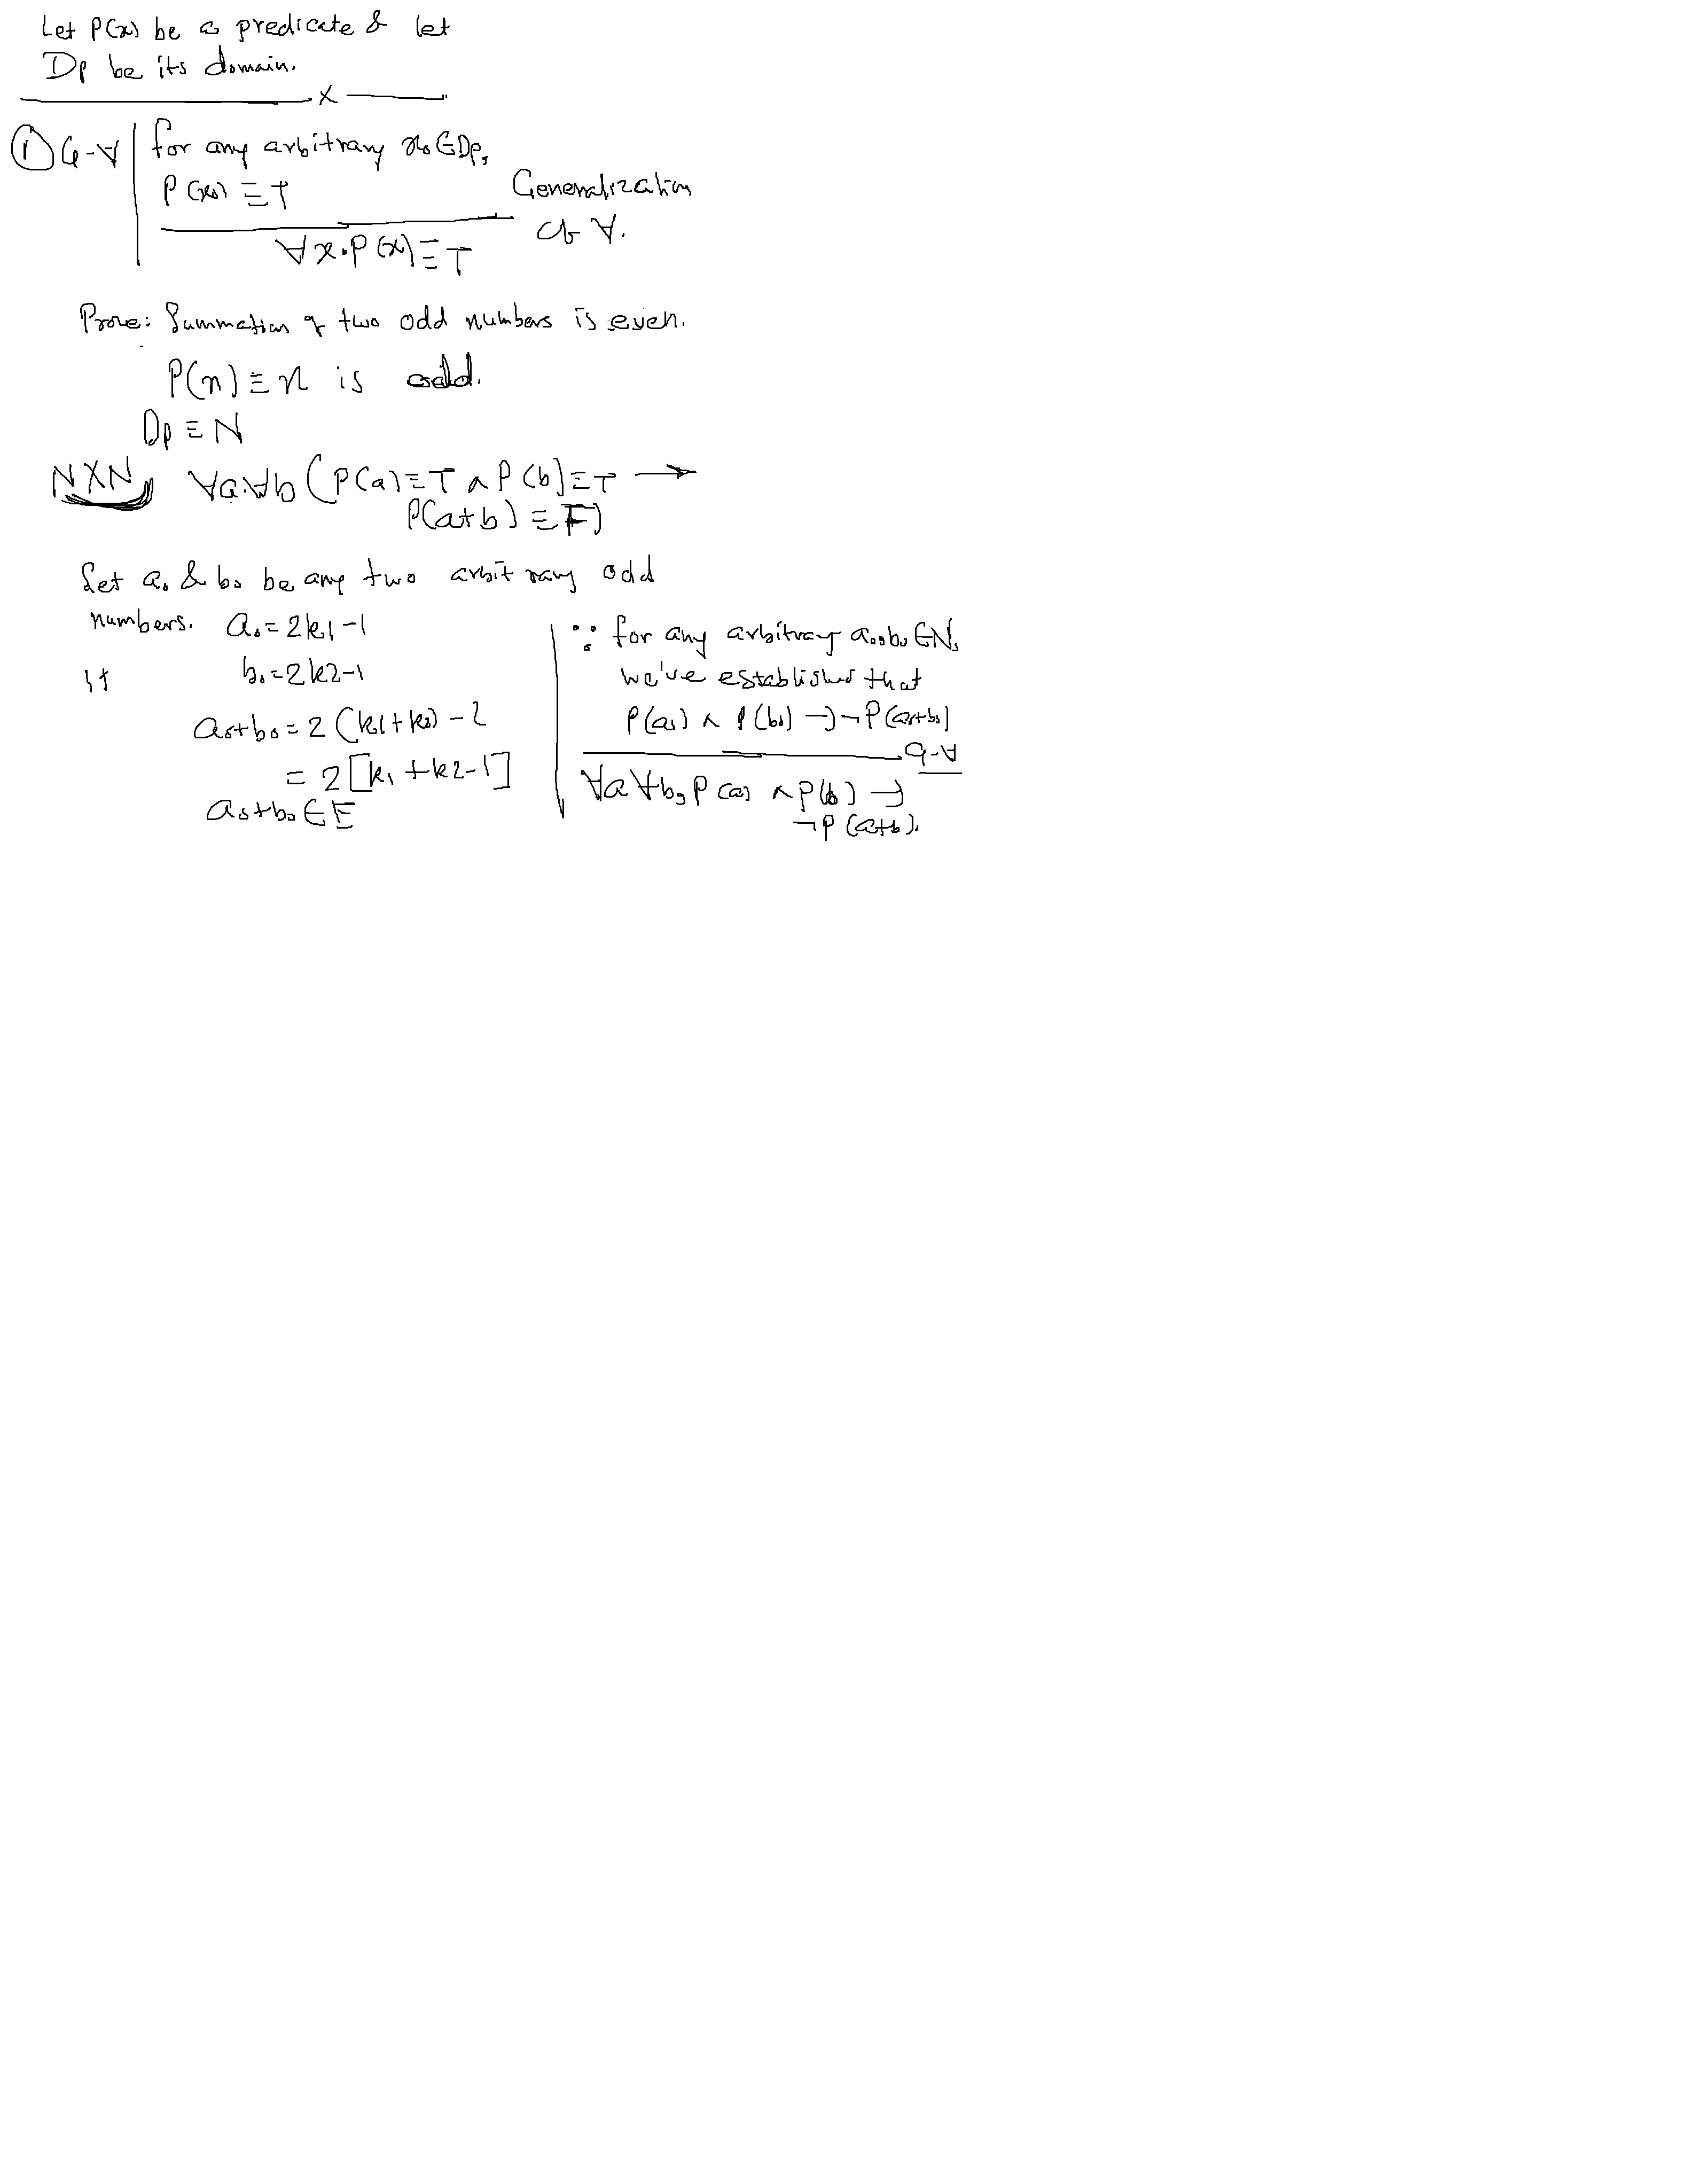 Let P(x) be a predicate & let
Dp be its domain.
x
① G-∀ for any arbitrary x₀∈Dp,
P(x₀) ≡ T
Generalization
of ∀.
∀x.P(x) ≡ T
Prove: Summation of two odd numbers is even.
P(n) ≡ n is odd.
Dp ≡ N
N×N ∀a.∀b (P(a) ≡ T ∧ P(b) ≡ T →
P(a+b) ≡ F)
Let a₀ & b₀ be any two arbitrary odd
numbers. a₀ = 2k1 - 1
b₀ = 2k2 - 1
a₀+b₀ = 2(k1+k2) - 2
= 2[k1 + k2 - 1]
a₀+b₀ ∈ E
∵ for any arbitrary a₀,b₀ ∈ N,
we've established that
P(a₀) ∧ P(b₀) → ¬P(a₀+b₀)
G-∀
∀a ∀b, P(a) ∧ P(b) →
¬P(a+b).